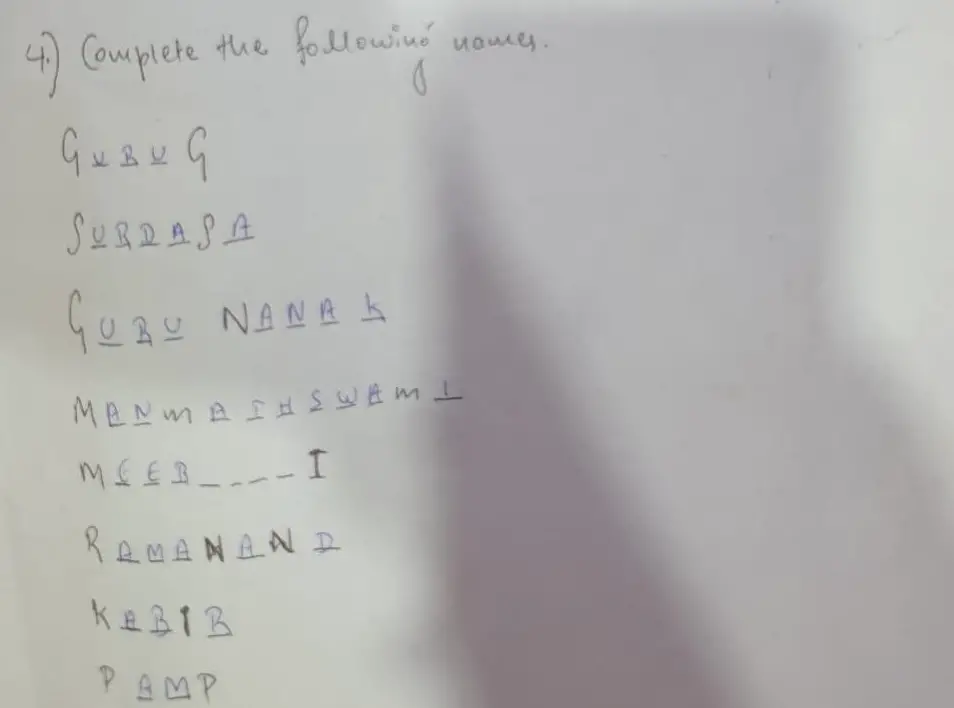 4.) Complete the following names.
GURU G
SURDASA
GURU NANAK
MANMATHSWAMI
MEER____I
RAMANAND
KABIR
PAMP